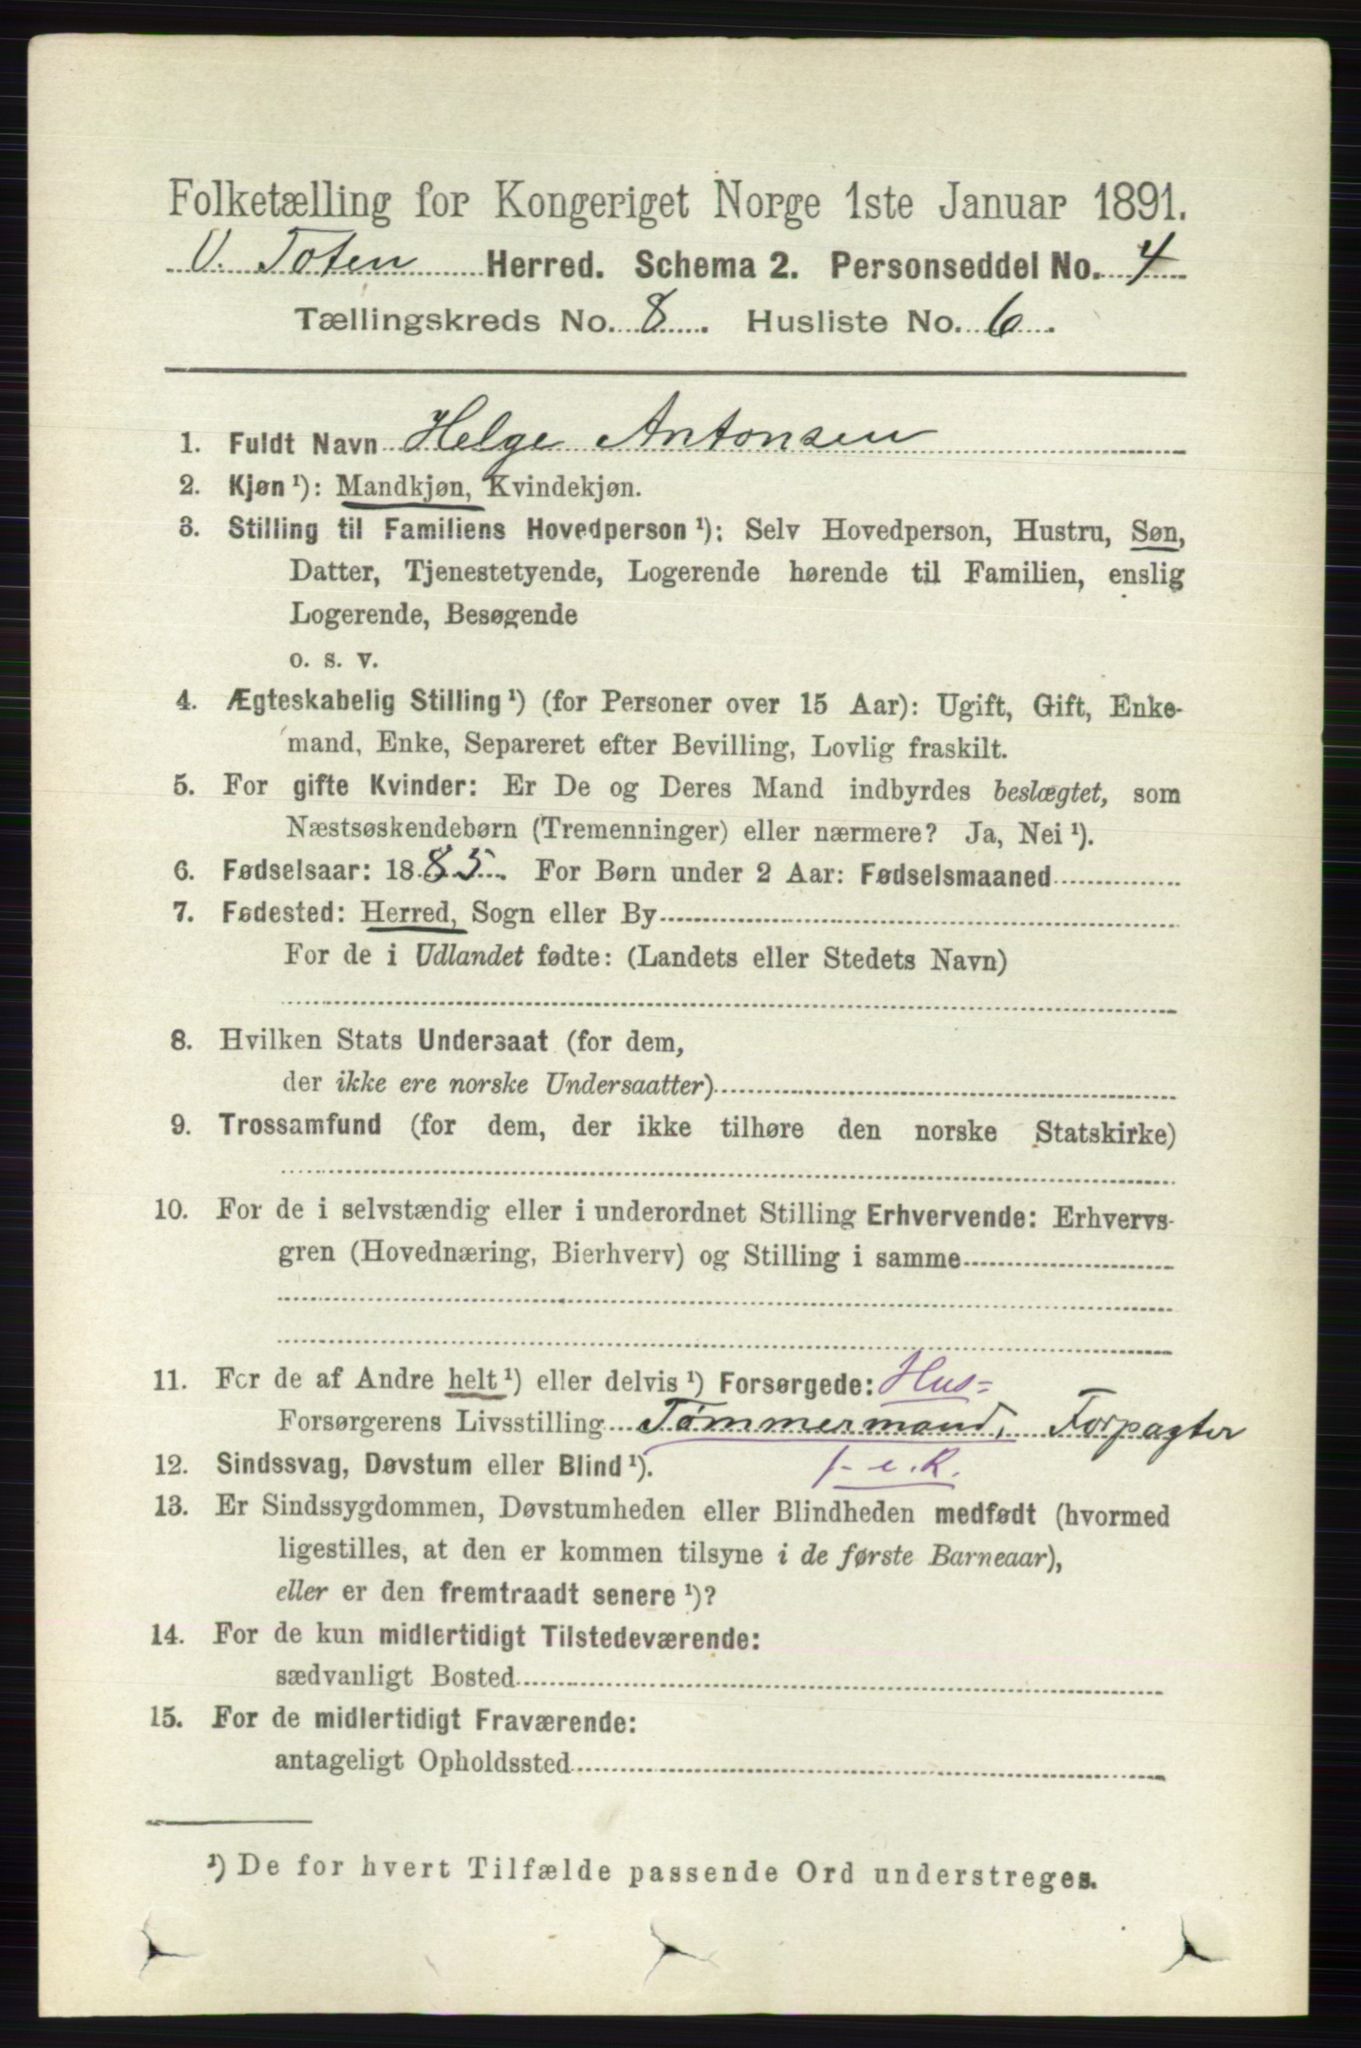 Folketælling for Kongeriget Norge 1ste Januar 1891.
V. Toten Herred. Schema 2. Personseddel No. 4
Tællingskreds No. 8. Husliste No. 6.
1. Fuldt Navn Helge Antonsen
2. Kjøn¹): Mandkjøn, Kvindekjøn.
3. Stilling til Familiens Hovedperson¹): Selv Hovedperson, Hustru, Søn,
Datter, Tjenestetyende, Logerende hørende til Familien, enslig
Logerende, Besøgende
o. s. v.
4. Ægteskabelig Stilling¹) (for Personer over 15 Aar): Ugift, Gift, Enke-
mand, Enke, Separeret efter Bevilling, Lovlig fraskilt.
5. For gifte Kvinder: Er De og Deres Mand indbyrdes beslægtet, som
Næstsøskendebørn (Tremenninger) eller nærmere? Ja, Nei¹).
6. Fødselsaar: 1885. For Børn under 2 Aar: Fødselsmaaned
7. Fødested: Herred, Sogn eller By
For de i Udlandet fødte: (Landets eller Stedets Navn)
8. Hvilken Stats Undersaat (for dem,
der ikke ere norske Undersaatter)
9. Trossamfund (for dem, der ikke tilhøre den norske Statskirke)
10. For de i selvstændig eller i underordnet Stilling Erhvervende: Erhvervs-
gren (Hovednæring, Bierhverv) og Stilling i samme
11. For de af Andre helt¹) eller delvis¹) Forsørgede: Hus=
Forsørgerens Livsstilling Tømmermand, Forpagter
12. Sindssvag, Døvstum eller Blind¹).
13. Er Sindssygdommen, Døvstumheden eller Blindheden medfødt (hvormed
ligestilles, at den er kommen tilsyne i de første Barneaar),
eller er den fremtraadt senere¹)?
14. For de kun midlertidigt Tilstedeværende:
sædvanligt Bosted
15. For de midlertidigt Fraværende:
antageligt Opholdssted
¹) De for hvert Tilfælde passende Ord understreges.